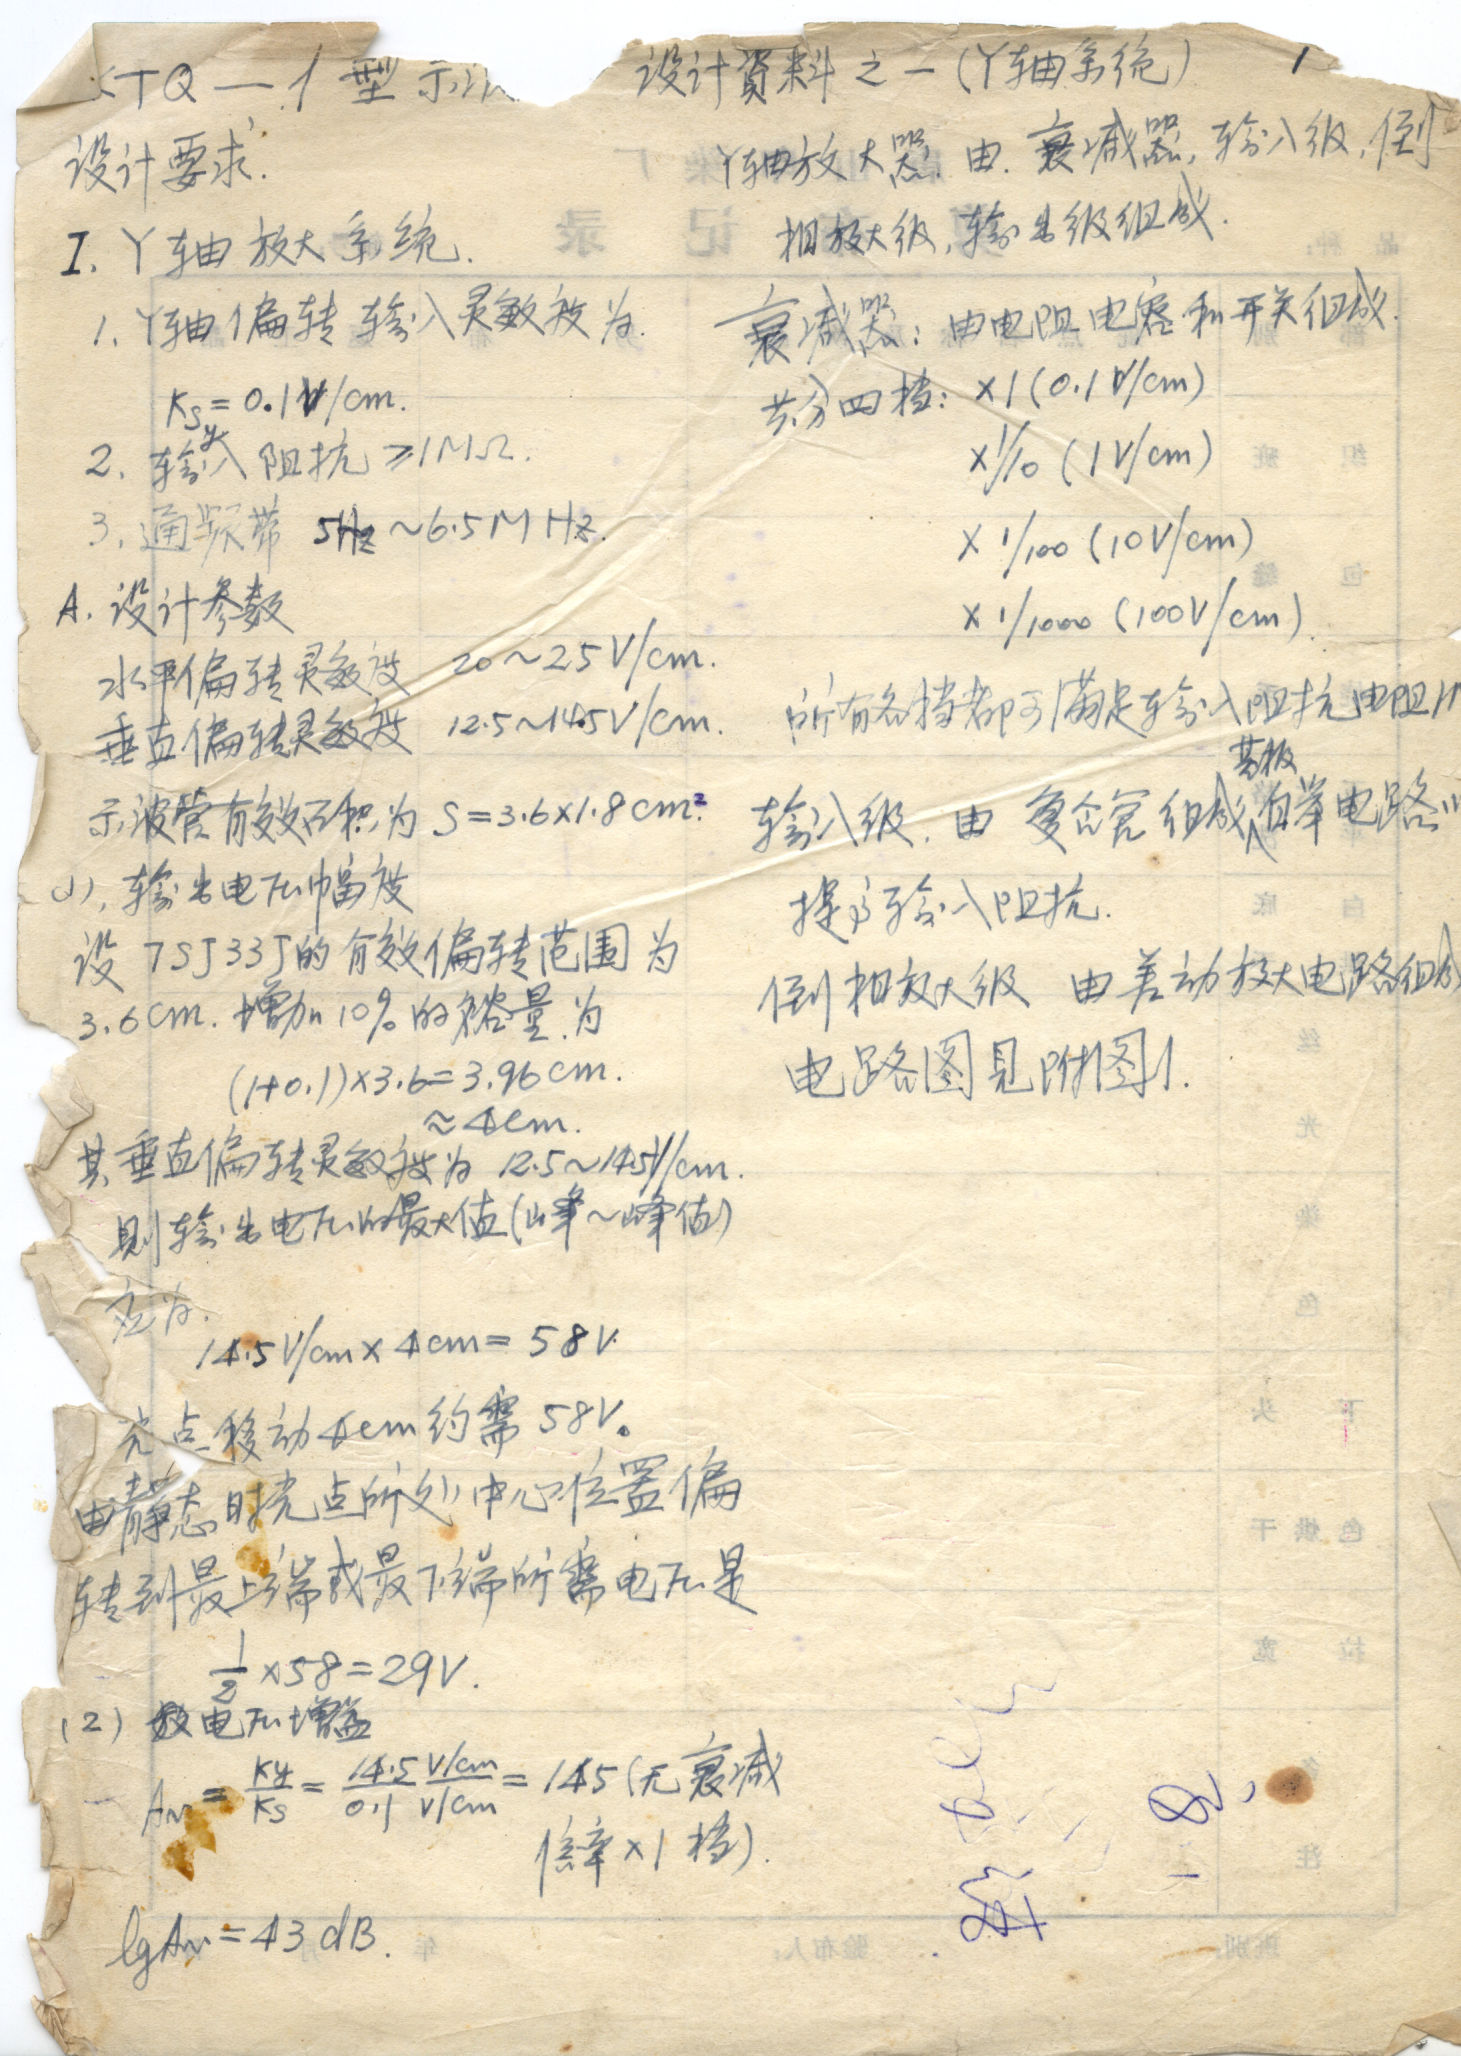 XTQ—1型示波 设计資料之一(Y轴系统) 1
设计要求.
I. Y轴放大系统.
1. Y轴偏转输入灵敏度为.
Ksy=0.1V/cm.
2. 输入阻抗 ≥1MΩ.
3. 通频带 5Hz~6.5MHz.
A. 设计参数
水平偏转灵敏度 20~25V/cm.
垂直偏转灵敏度 12.5~14.5V/cm.
示波管有效面积为 S=3.6×1.8cm²
(1), 输出电压幅度
设 7SJ33J的有效偏转范围为
3.6cm. 增加10%的裕量.为
(1+0.1)×3.6=3.96cm.
≈4cm.
其垂直偏转灵敏度为 12.5~14.5V/cm.
则输出电压的最大值(峰~峰值)
应为.
14.5V/cm×4cm=58V.
光点移动4cm约需58V。
由静态时光点所处中心位置偏
转到最上端或最下端所需电压是
1/2×58=29V.
(2) 放电压增益
Am=Ky/Ks=14.5 V/cm/0.1 V/cm=145(无衰减
倍率×1档).
lgAm=43dB.
Y轴放大器.由.衰减器,输入级,倒
相放大级,输出级组成.
衰减器:由电阻电容和开关组成.
共分四档: ×1(0.1V/cm)
×1/10 (1V/cm)
×1/100 (10V/cm)
×1/1000 (100V/cm)
所有各档都可满足输入阻抗电阻1M
基极
输入级.由 复合管组成 自举电路
提高输入阻抗.
倒相放大级 由差动放大电路组成
电路图见附图1.